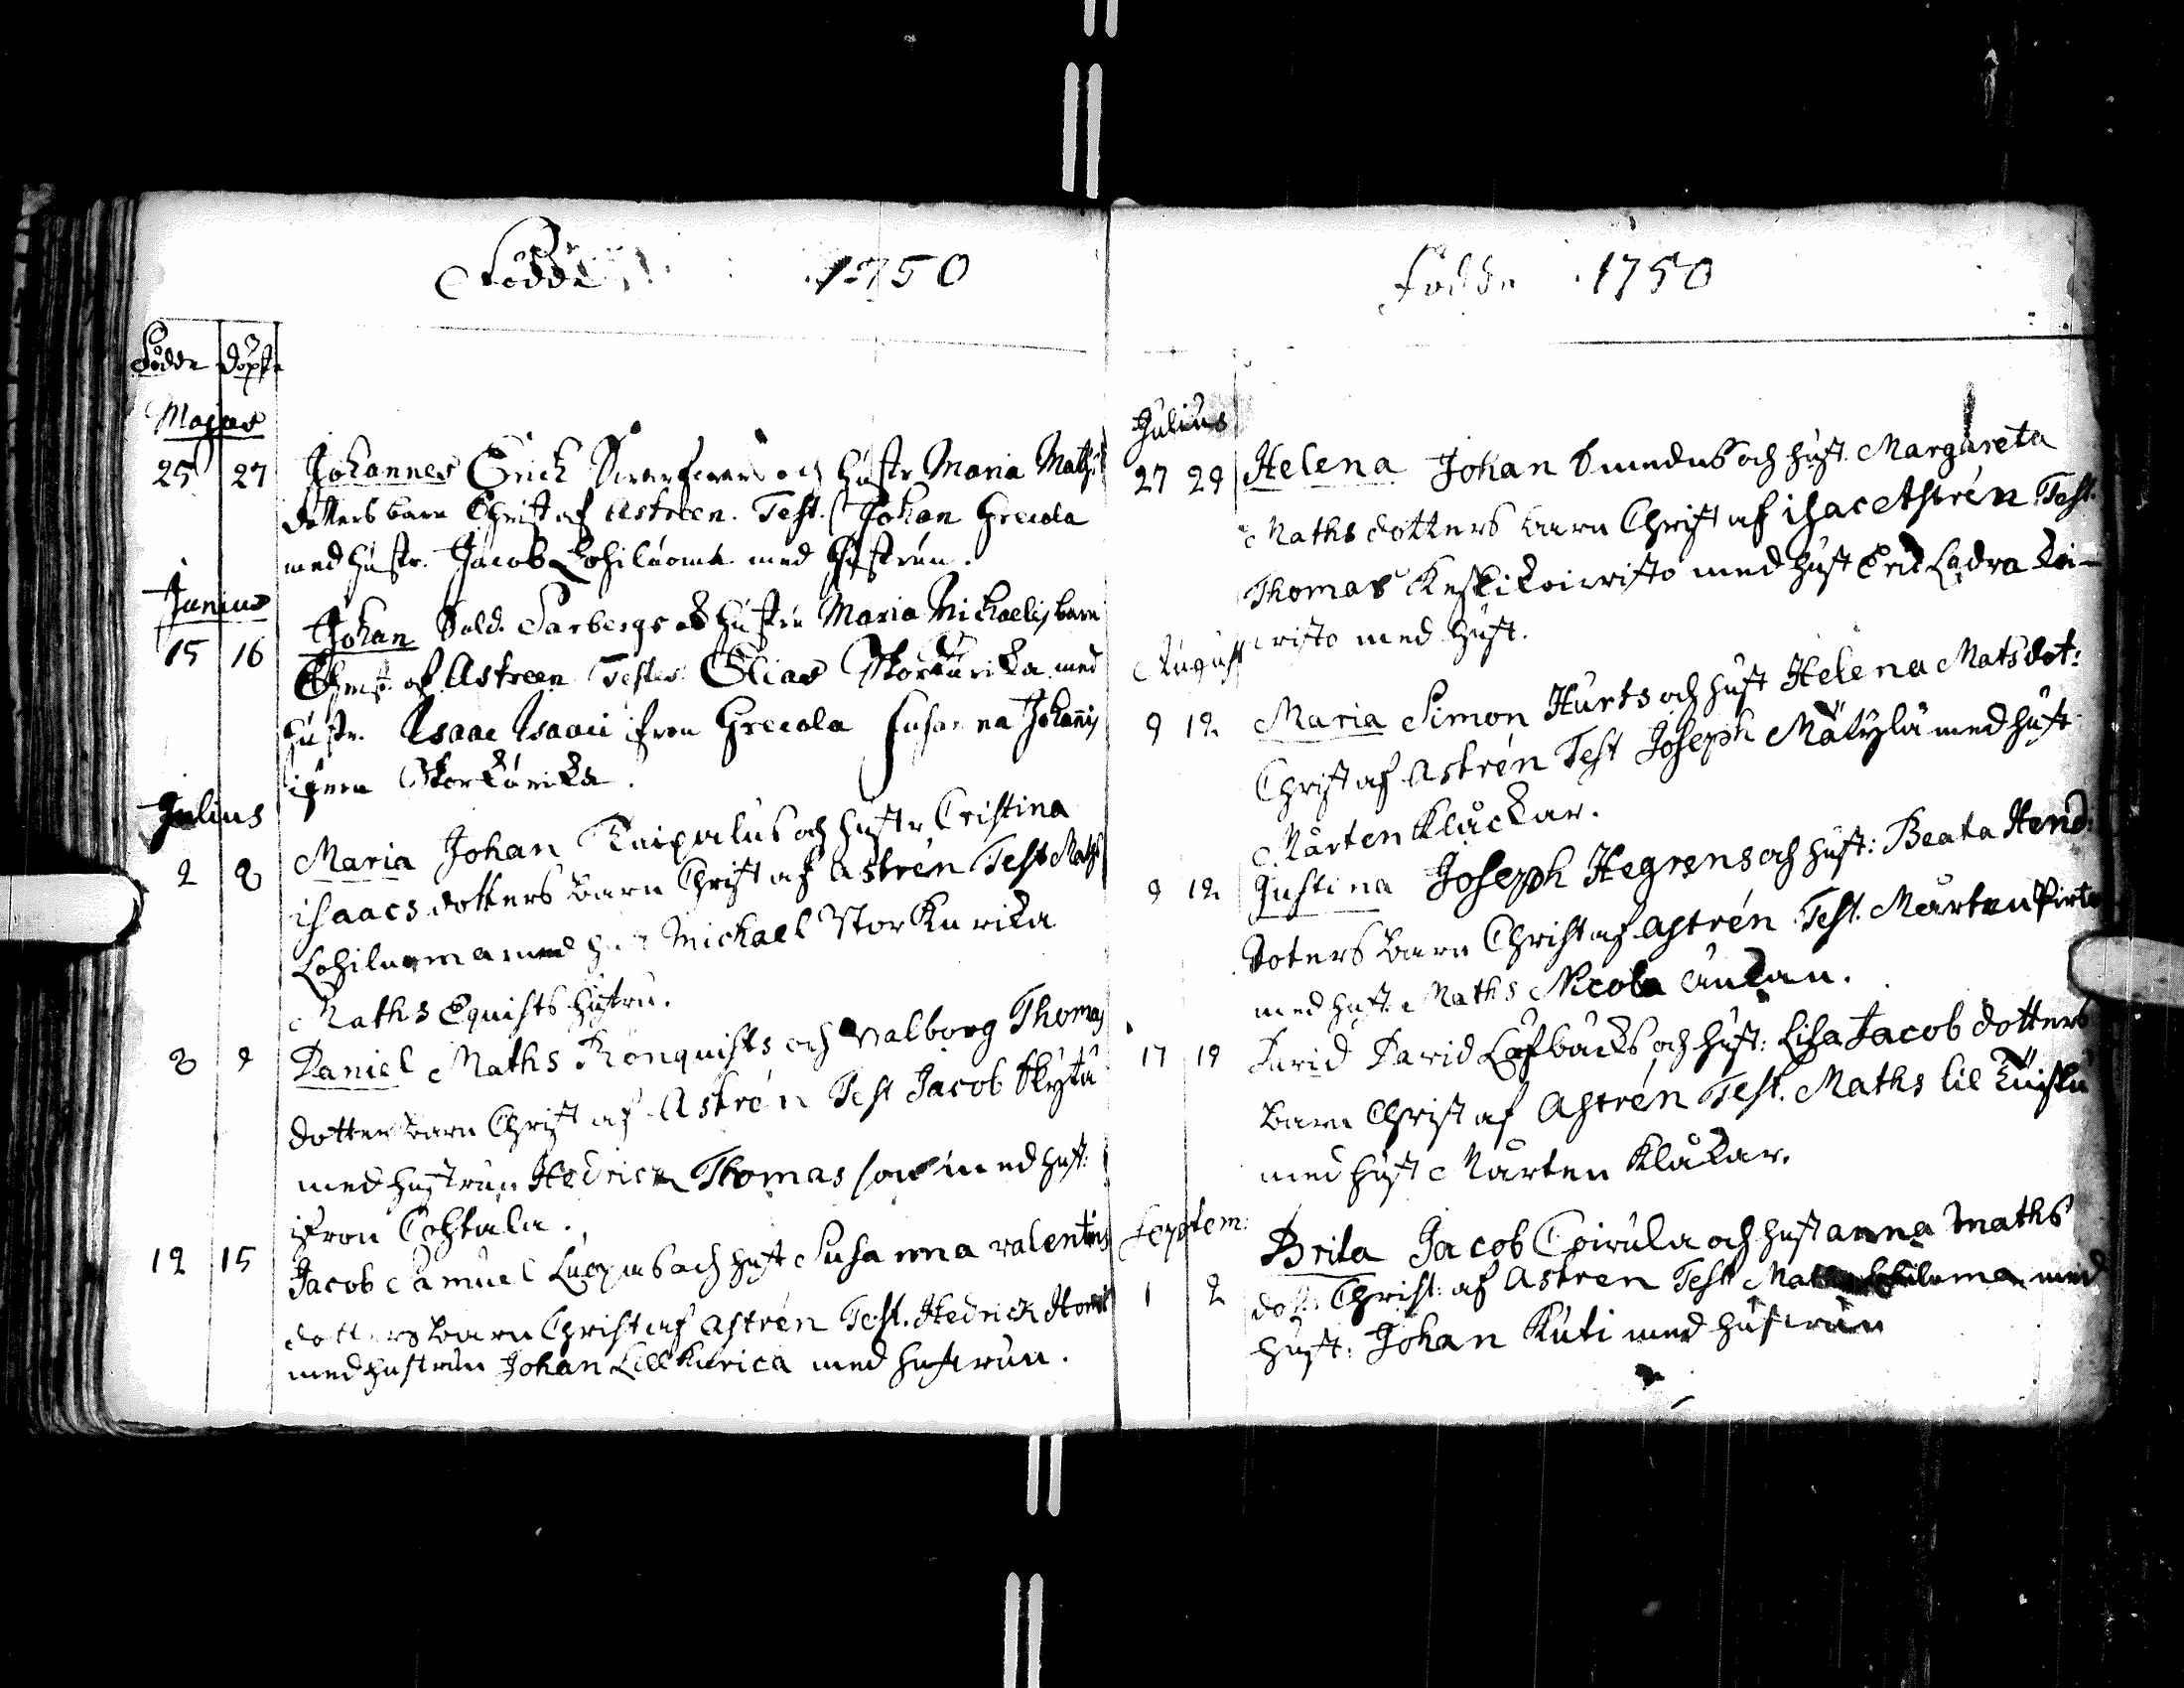 Födde 1750
Födde Döpte
Majus
25 27 Johannes Erick och hustr Maria Maths
dotters barn Christ af Astreen. Test. Johan Grecola
med hustr. Jacob Lohiluoma med Hustrun.
Junius
15 16 Johan Sold. Sarbergs och hustru Maria Michaelis barn
Christ. af Astreen Testes Elias Storkurika med
hustr. Isaac Isaaci ifron Grecola Susanna Johannis
ifrån Storkurika.
Julius
2 8 Maria Johan Knipalus och hustr Cristina
isaacs dotters barn Christ af Astrén Test Maths
Lohiluoma med Michael Storkurika
Maths Equists hustru.
8 9 Daniel Maths Rönquists och Valborg Thomas
dotter barn Christ af Astrén Test Jacob Skytä
med hustrun Hedrich Thomas son med hust:
ifron
12 15 Jacob Samuel och hust Susanna valentins
dotters barn Christ af Astrén Test. Hedrick
med hustrun Johan Lill Kurica med hustrun.
Födde 1750
Julius
27 29 Helena Johan Smedus och hust. Margareta
Maths dotters barn Christ af isac Astrén Test.
Thomas Keski Koiwisto med hust Eric Ladva Koi-
wisto med hust.
August
9 12 Maria Simon Hurts och hust Helena Mats dot:
Christ af Astrén Test Joseph Mäkylä med hust
Mårten Klåckar.
9 12 Justina Joseph Hegrens och hust: Beata Hend:
doters barn Christ af Astrén Test. Mårten Pirta
med hust. Maths Nicola änkan.
17 19 David David Löfbacks och hust: Lisa Jacob dotters
barn Christ af Astrén Test. Maths lil
med hust Mårten Klåkar.
Septem:
1 2 Brita Jacob Coivula och hust anna Maths
dott: Christ: af Astren Test med
hust: Johan Kuti med hustrun